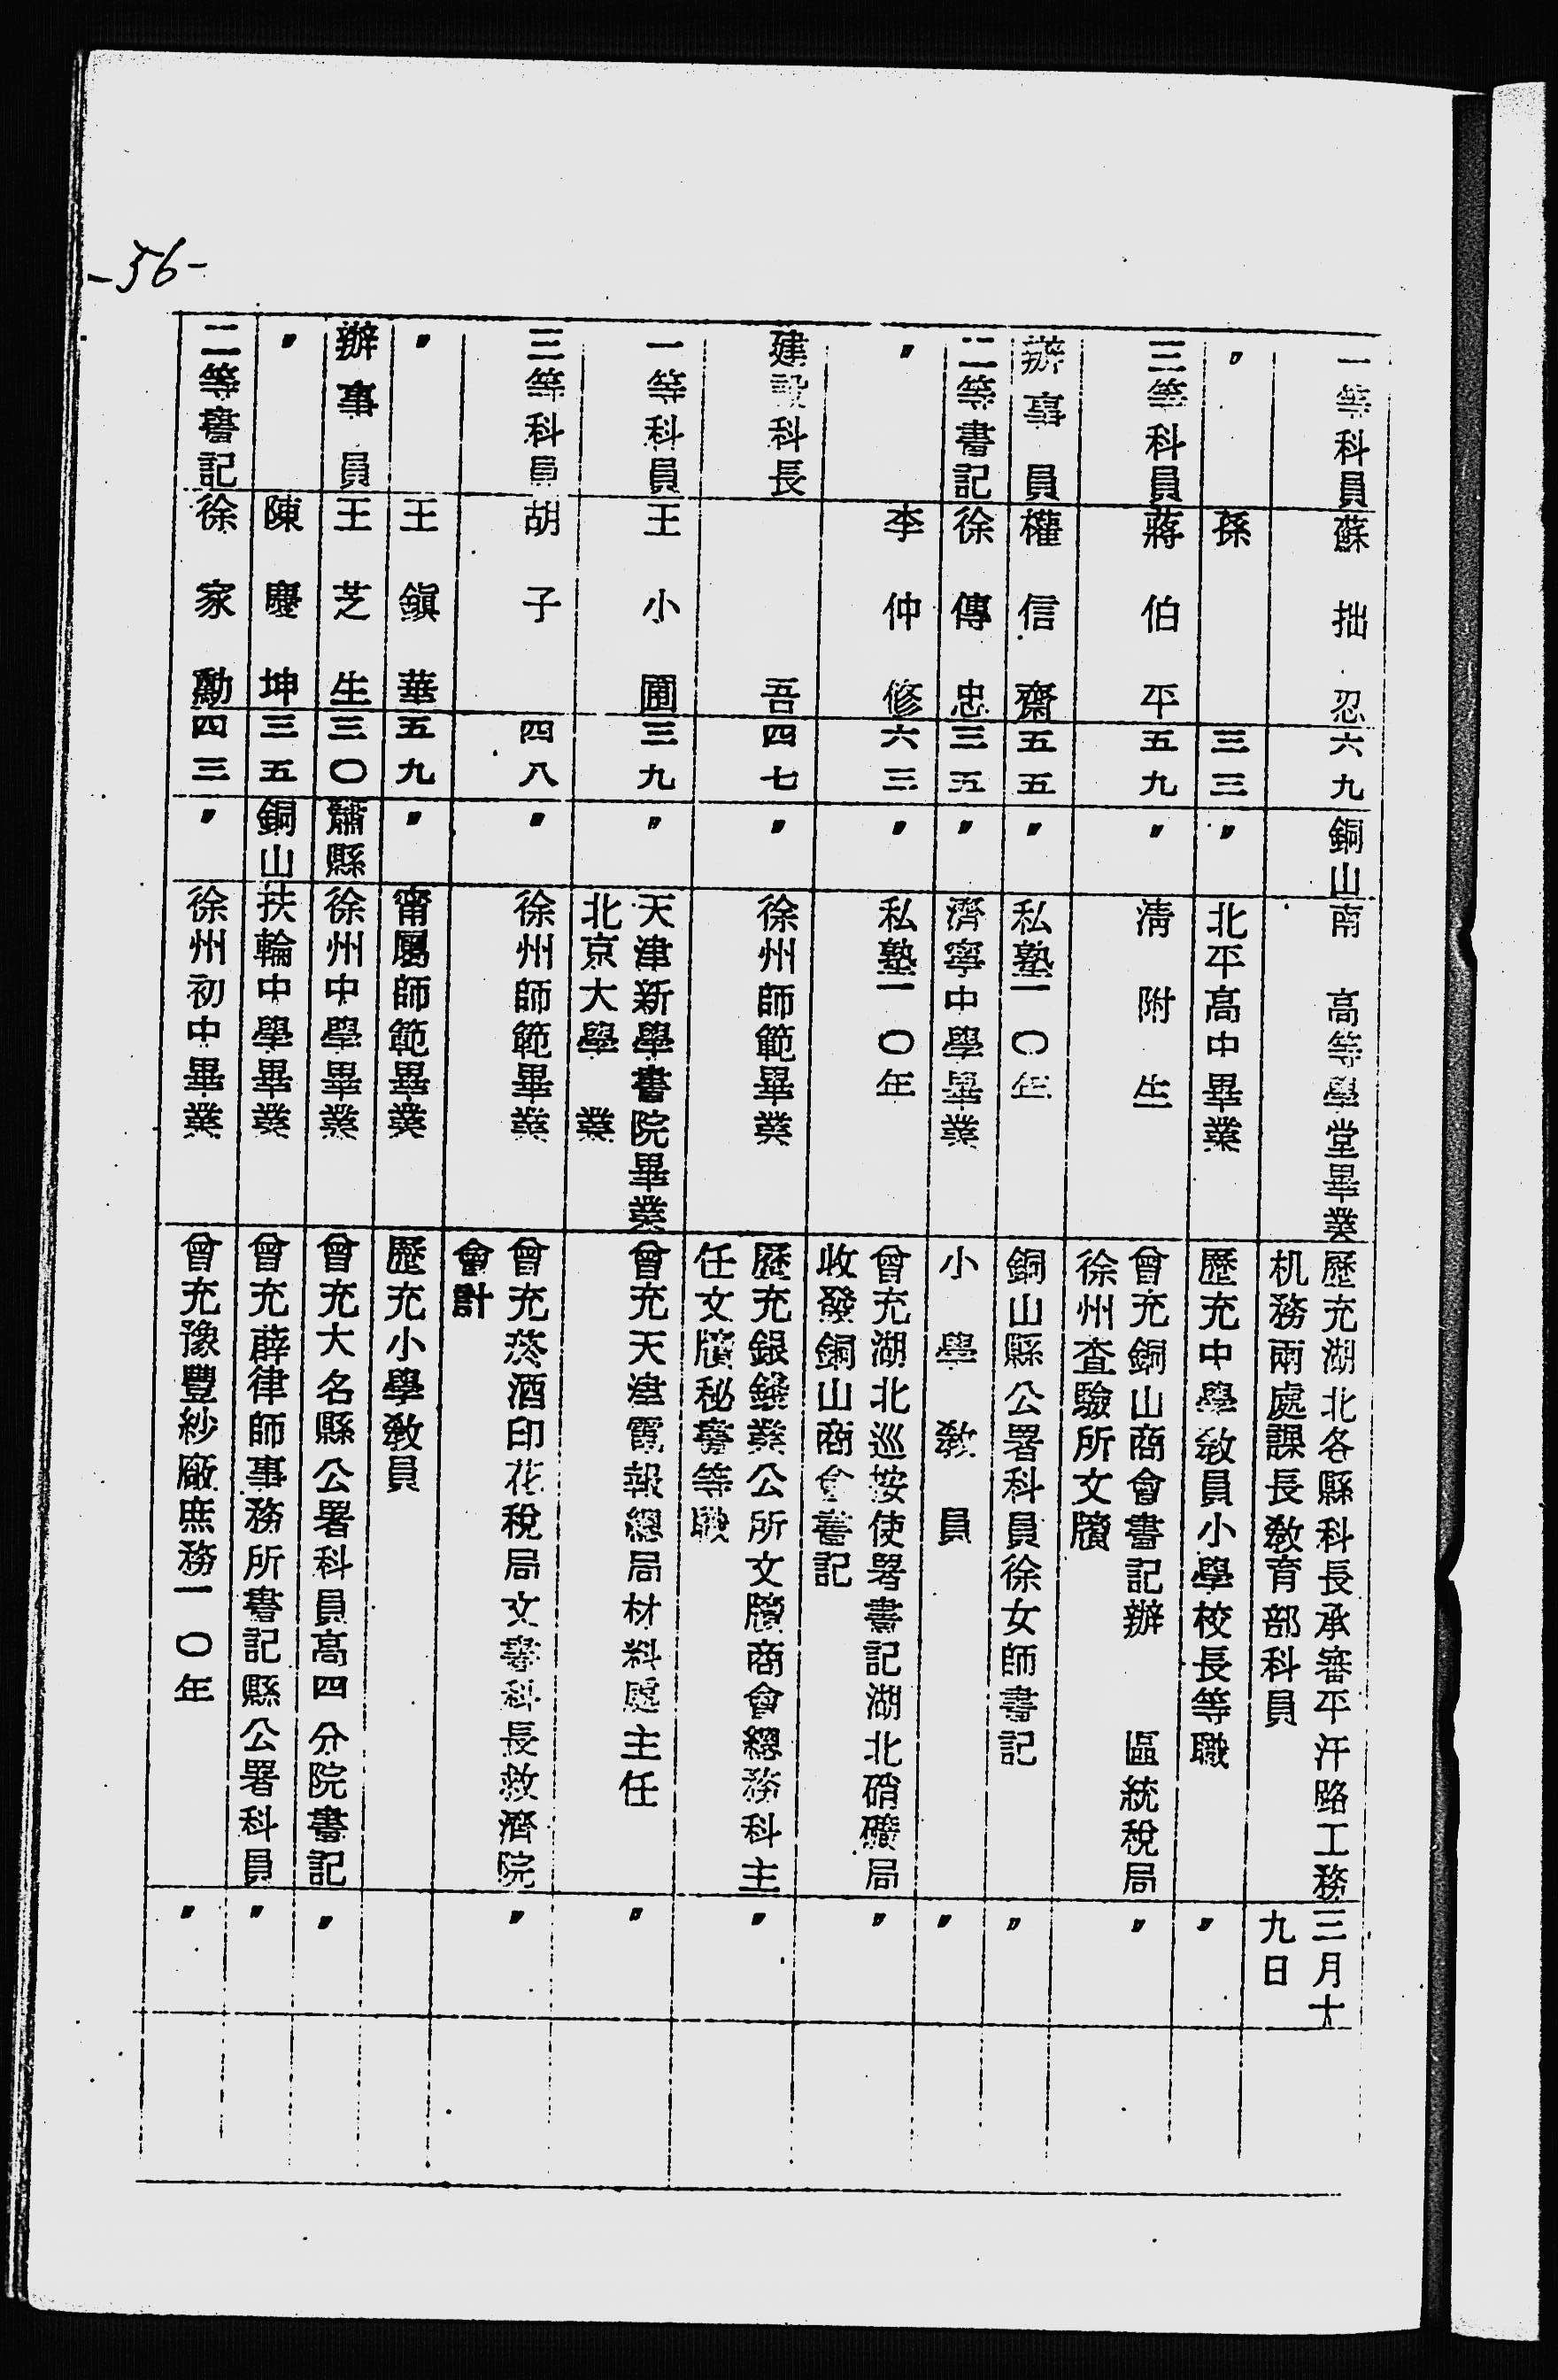 -56-
一等科員 蘇拙忍 六九 銅山 南 高等學堂畢業 歷充湖北各縣科長承審平汗路工務
机務兩處課長敎育部科員 三月十
九日
〃 孫 三三 〃 北平高中畢業 歷充中學敎員小學校長等職 〃
三等科員 蔣伯平 五九 〃 淸附生 曾充銅山商會書記辦 區統稅局
徐州查驗所文牘 〃
辦事員 權信齋 五五 〃 私塾一〇年 銅山縣公署科員徐女師書記 〃
二等書記 徐傳忠 三五 〃 濟寧中學畢業 小學敎員 〃
〃 李仲修 六三 〃 私塾一〇年 曾充湖北巡按使署書記湖北硝礦局
收發銅山商會書記 〃
建設科長 吾 四七 〃 徐州師範畢業 歷充銀錢業公所文牘商會總務科主
任文牘秘書等職 〃
一等科員 王小圃 三九 〃 天津新學書院畢業
北京大學 業 曾充天津電報總局材料處主任 〃
三等科員 胡子 四八 〃 徐州師範畢業 曾充菸酒印花稅局文書科長救濟院
會計 〃
〃 王鎭華 五九 〃 甯屬師範畢業 歷充小學敎員
辦事員 王芝生 三〇 蕭縣 徐州中學畢業 曾充大名縣公署科員高四分院書記 〃
〃 陳慶坤 三五 銅山 扶輪中學畢業 曾充薛律師事務所書記縣公署科員 〃
二等書記 徐家勳 四三 〃 徐州初中畢業 曾充豫豐紗廠庶務一〇年 〃